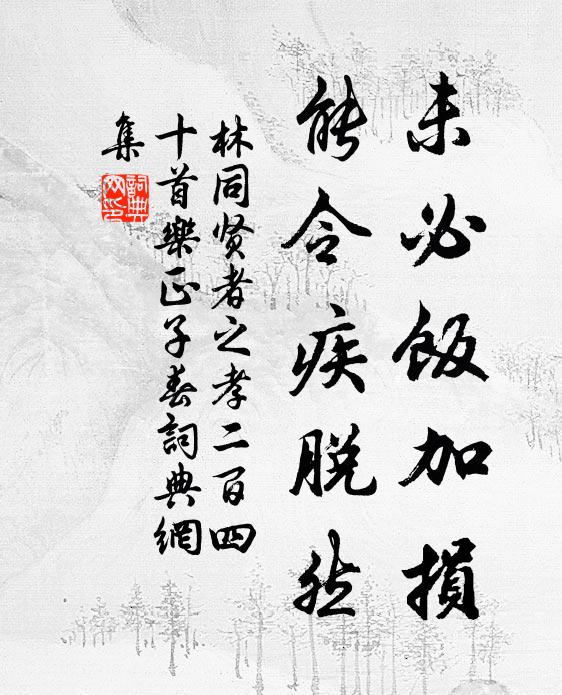 未必飯加損
能令疾脱然
林同贤者之孝二百四
十首樂正子春詞典網
集
詞典网印